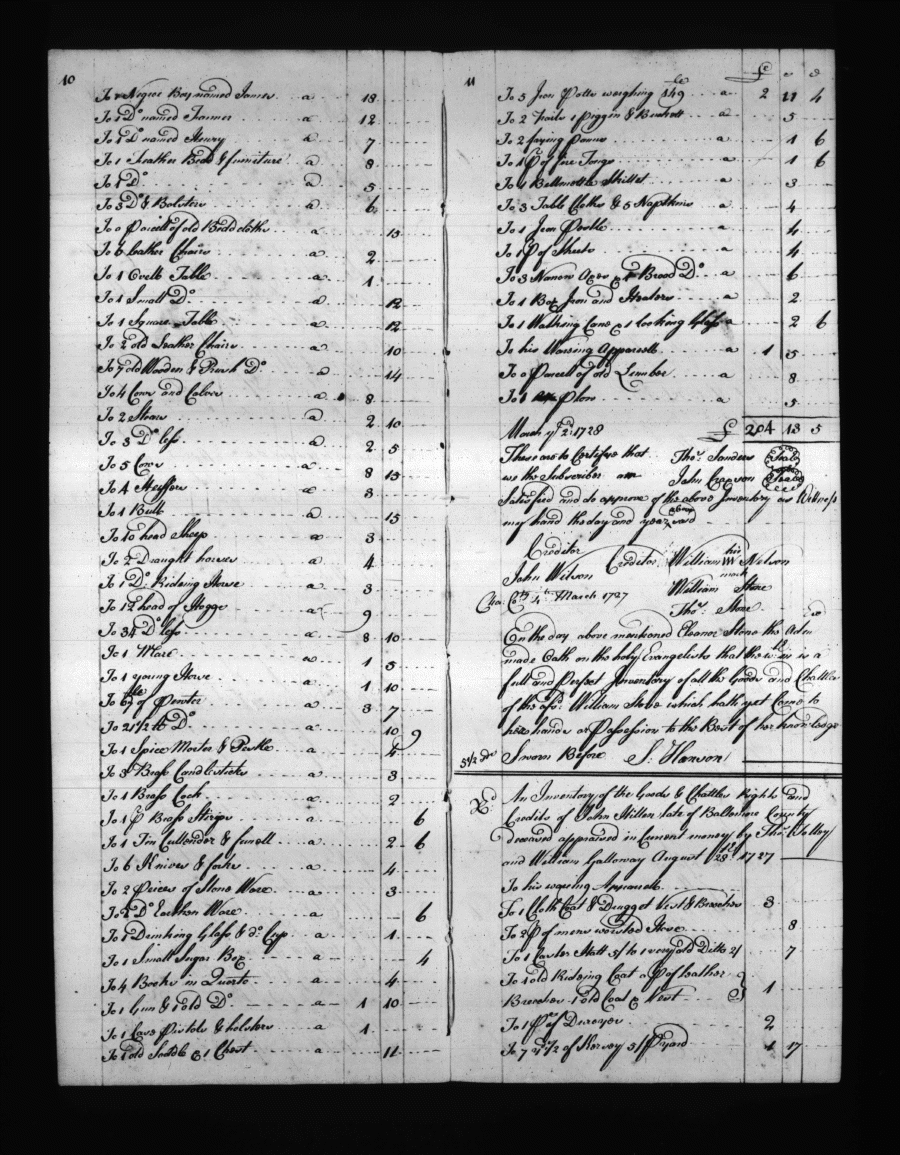 10
To 1 Negroe Boy named James a 18
To 1 Do named Farmer a 12
To 1 Do named Henry a 7
To 1 Feather Bedd & furniture a 8
To 1 Do a 5
To 3 Do & Bolsters a 6
To a Parcell of old Bedd cloths a 15
To 6 Leather Chairs a 2
To 1 Ovell Table a 1
To 1 Small Do a 12
To 1 Square Table a 12
To 2 old Leather Chairs a 10
To 7 old Wooden & Rush Do a 14
To 4 Cows and Calves a 8
To 2 Steers a 2 10
To 3 Do less a 2 5
To 5 Cows a 8 15
To 4 Heiffers a 3
To 1 Bull a 15
To 10 head Sheep a 3
To 2 Draught horses a 4
To 1 Do Rideing Horse a 3
To 12 head of Hogge a 9
To 34 Do less a 8 10
To 1 Mare a 1 5
To 1 young Horse a 1 10
To of Pewter a 3 7
To 21 1/2 lb Do a 10 9
To 1 Spice Morter & Pestle a 4
To 3 Brass Candlesticks a 3
To 1 Brass Cock a 2
To 1 pr Brass Stirps a 6
To 1 Tin Cullender & funell a 2 6
To 6 Knives & forks a 4
To 2 Peices of Stone Ware a 3
To 2 Do Earthen Ware a 6
To 1 Drinking Glass & do Cup a 1
To 1 Small Sugar Box a 4
To 4 Books in Quarto a 4
To 1 Gun & 1 old Do a 1 10
To 1 Case Pistols & holsters a 1
To 1 old Saddle & 1 Chest a 11
11
£ s d
To 5 Iron Potts weighing 149 a 2 11 4
To 2 Pails 1 piggin & Buckett a 5
To 2 frying Panns a 1 6
To 1 pr of fire Tongs a 1 6
To 1 Bellmettle Skillet a 3
To 3 Table Cloths & 5 Napkins a 4
To 1 Iron Pestle a 4
To 1 pr of Sheets a 4
To 3 Narrow Axes & 1 Broad Do a 6
To 1 Box Iron and Heaters a 2
To 1 Walking Cane & 1 looking Glass a 2 6
To his Waring Apparell a 1 5
To a Parcell of old Lumber a 8
To 1 Plow a 5
March ye 2d 1728 £ 204 13 5
These are to Certifye that Thos Sanders Seale
we the Subscriber are John Seale
Satisfied and do approve of the above Inventory as Witness
my hand the day and year above said
Creditor
John Wilson Creditor William his W mark Nelson
4th March 1727 William Stone
Thos Stone
On the day above mentioned Eleanor Stone the Adm
made Oath on the holy Evangelists that the within is a
full and Perfect Inventory of all the Goods and Chattles
of the afd William Stone which hath yet Come to
her hands or Possession to the Best of her knowledge
Sworn Before J. Hanson
An Inventory of the Goods & Chattles Rights and
Credits of John Hillen late of Baltemore County
deceased appraised in Current money by Thos Talley
and William Galloway August 28th 1727
To his waring Apparele
To 1 Cloth Coat & Drugget Vest & Breeches 3
To 2 pr of mens woosted Hose 8
To 1 Castor Hatt 5/ to 1 very old Ditto 2/ 7
To 1 old Rideing Coat a pr of leather
Breeches 1 old Coat & Vest 1
To 1 Ps of Duroyer 2
To 7 yds 1/2 of Kersey 5/ pr yard 1 17